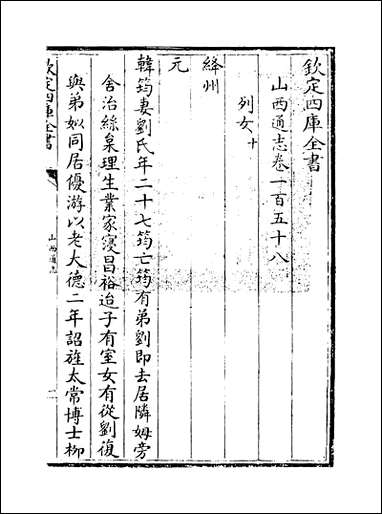 欽定四庫全書
山西通志卷一百五十八
列女十
絳州
元
韓筠妻劉氏年二十七筠亡筠有弟劉即去居隣姆旁
舍治絲枲理生業家寖昌裕迨子有室女有從劉復
與弟姒同居優游以老大德二年詔旌太常博士柳
欽定四庫全書
山西通志